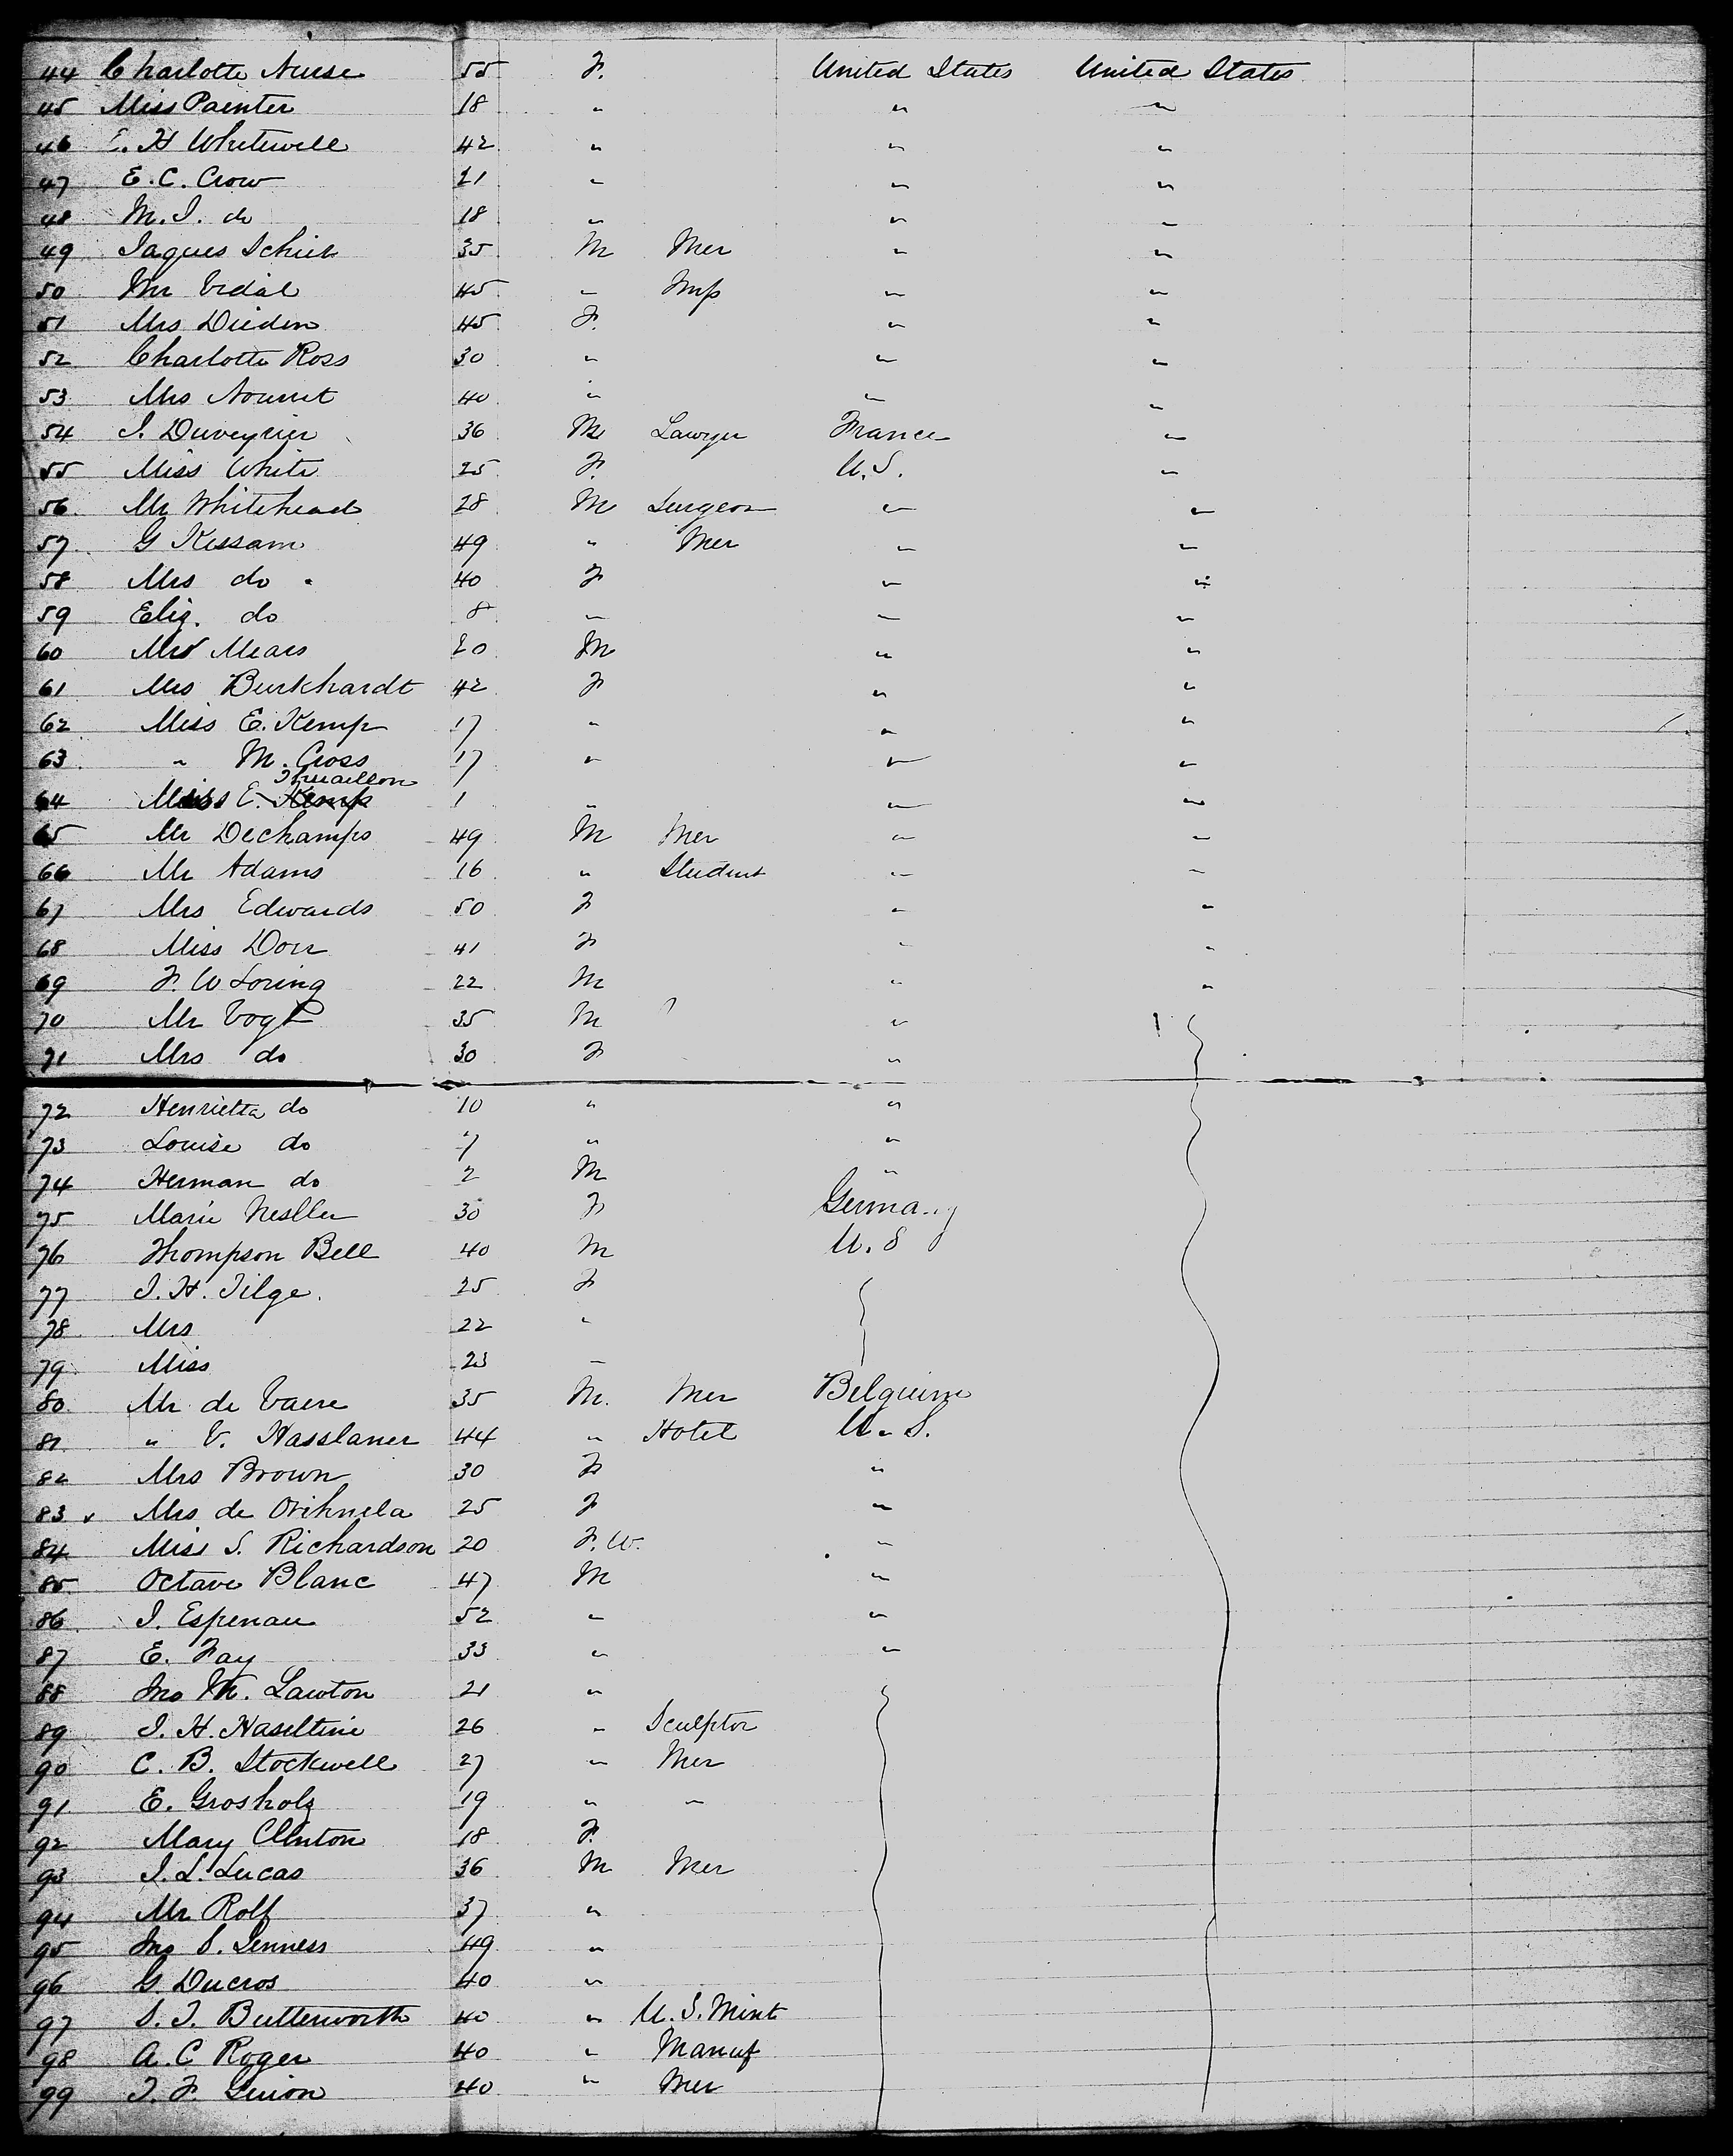 44 Charlotte Nurse 55 F. United States United States
45 Miss Painter 18 " " "
46 E. H Whitewell 42 " " "
47 E. C. Crow 21 " " "
48 M. I. do 18 " " "
49 Jaques Schiet 35 M Mer " "
50 Mr Vidal 45 " Imp " "
51 Mrs Dieden 45 F. " "
52 Charlotte Ross 30 " " "
53 Mrs Nourrit 40 " " "
54 J. Duveyrier 36 M Lawyer France "
55 Miss White 25 F. U.S. "
56 Mr Whitehead 28 M Surgeon " "
57 G Kissam 49 " Mer " "
58 Mrs do 40 F " "
59 Eliz. do 8 " " "
60 Mr Mears 20 M " "
61 Mrs Burkhardt 42 F " "
62 Miss E. Kemp 17 " " "
63 " M. Cross 17 " " "
64 Miss E. 1 " " "
65 Mr Dechamps 49 M Mer " "
66 Mr Adams 16 " Student " "
67 Mrs Edwards 50 F " "
68 Miss Dorr 41 F " "
69 F. W Loring 22 M " "
70 Mr Vogt 35 M "
71 Mrs do 30 F "
72 Henrietta do 10 " "
73 Louise do 7 " "
74 Herman do 2 M "
75 Marie Nesller 30 F Germany
76 Thompson Bell 40 M U. S
77 J. H. Tilge. 25 F
78 Mrs 22 "
79 Miss 23 "
80 Mr de Vaere 35 M. Mer Belguim
81 " V. Hasslaner 44 " Hotel U. S.
82 Mrs Brown 30 F "
83 Mrs de Orihuela 25 F "
84 Miss S. Richardson 20 F. W. "
85 Octave Blanc 47 M "
86 J. Espenau 52 " "
87 E. Fay 33 " "
88 Jno M. Lawton 21 "
89 J. H. Haseltine 26 " Sculptor
90 C. B. Stockwell 27 " Mer
91 E. Grosholz 19 " "
92 Mary Clinton 18 F.
93 J. L. Lucas 36 M Mer
94 Mr Rolf 37 "
95 Jno S. Jenness 49 "
96 G. Ducros 40 "
97 S. J. Butterworth 40 " U. S. Mint
98 A. C Roger 40 " Manuf
99 J. F. 40 " Mer